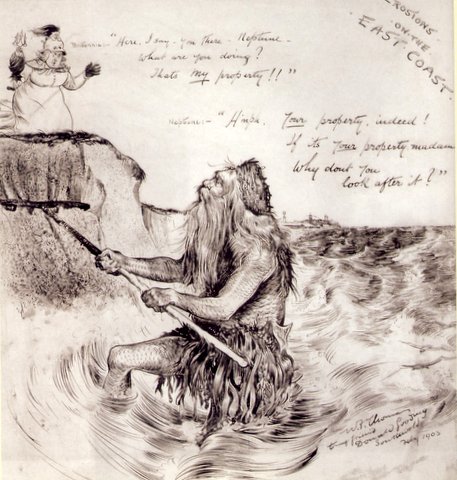 EROSIONS
ON THE
EAST COAST.
Britannia:- "Here, I say - you there - Neptune -
What are you doing?
Thats my property!!"
Neptune:- "H'mph. Your property, indeed!
If its your property madam
Why dont you
look after it?"
to my friend
Donald Gooding
Southwold
1903